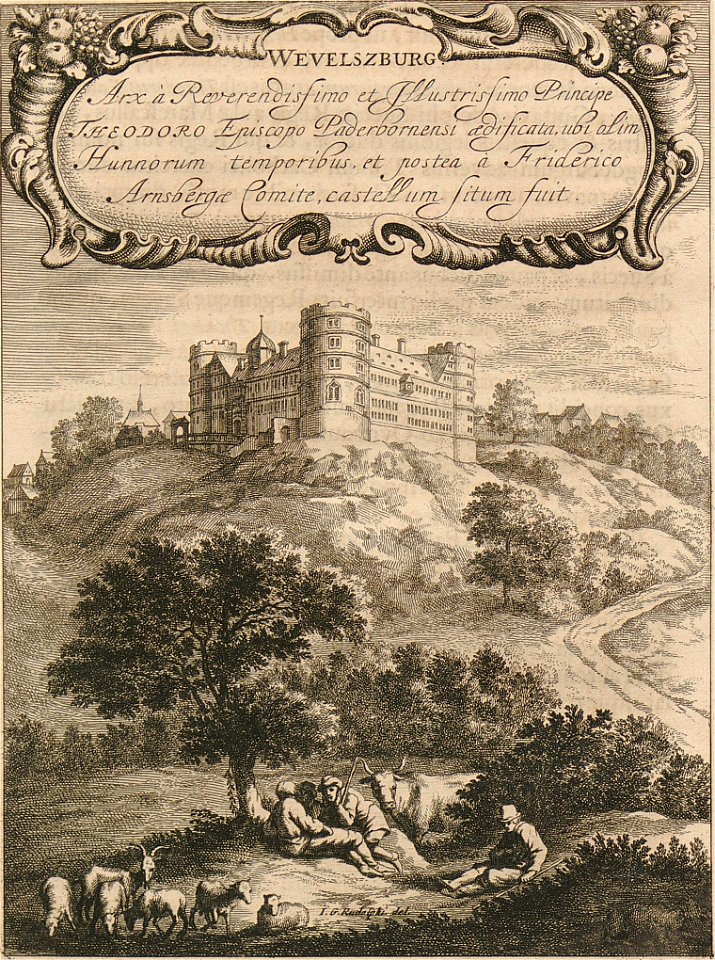 WEVELSZBURG.
Arx à Reverendissimo et Illustrissimo Principe
THEODORO Episcopo Paderbornensi ædificata, ubi olim
Hunnorum temporibus, et postea à Friderico
Arnsbergæ Comite, castellum situm fuit.
I. G. Rudolphi del.